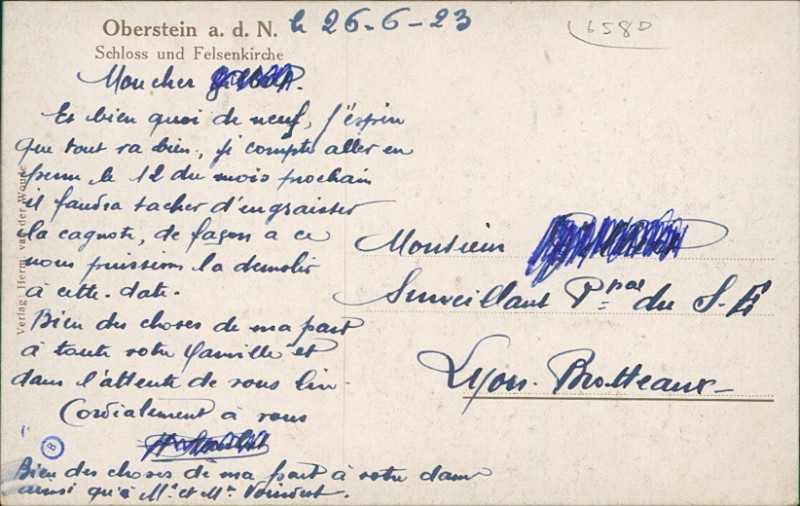 Oberstein a. d. N. le 26-6-23
Schloss und Felsenkirche
6580
Mon cher
Et bien quoi de neuf, j'espère
que tout va bien, je compte aller en
perm le 12 du mois prochain
il faudra tacher d'engraisser
la cagnote, de façon a ce
nous puissions la demolir
à cette date.
Bien des choses de ma part
à toute votre famille et
dans l'attente de vous lire
Cordialement à vous
8
Bien des choses de ma part à votre dame
ainsi qu'à Mr et Mr
Verlag: Herm. van der Woude
Monsieur
Surveillant Ppal du S. E
Lyon-Brotteaux